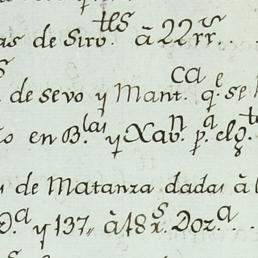 as de Sirv.tes à 22 rr.s
de sevo y Mant.ca q.e se
en B.las y Xav.n p.a el g.to
s de Matanza dadas à l
D.a y 137,, à 18 r.s Doz.a